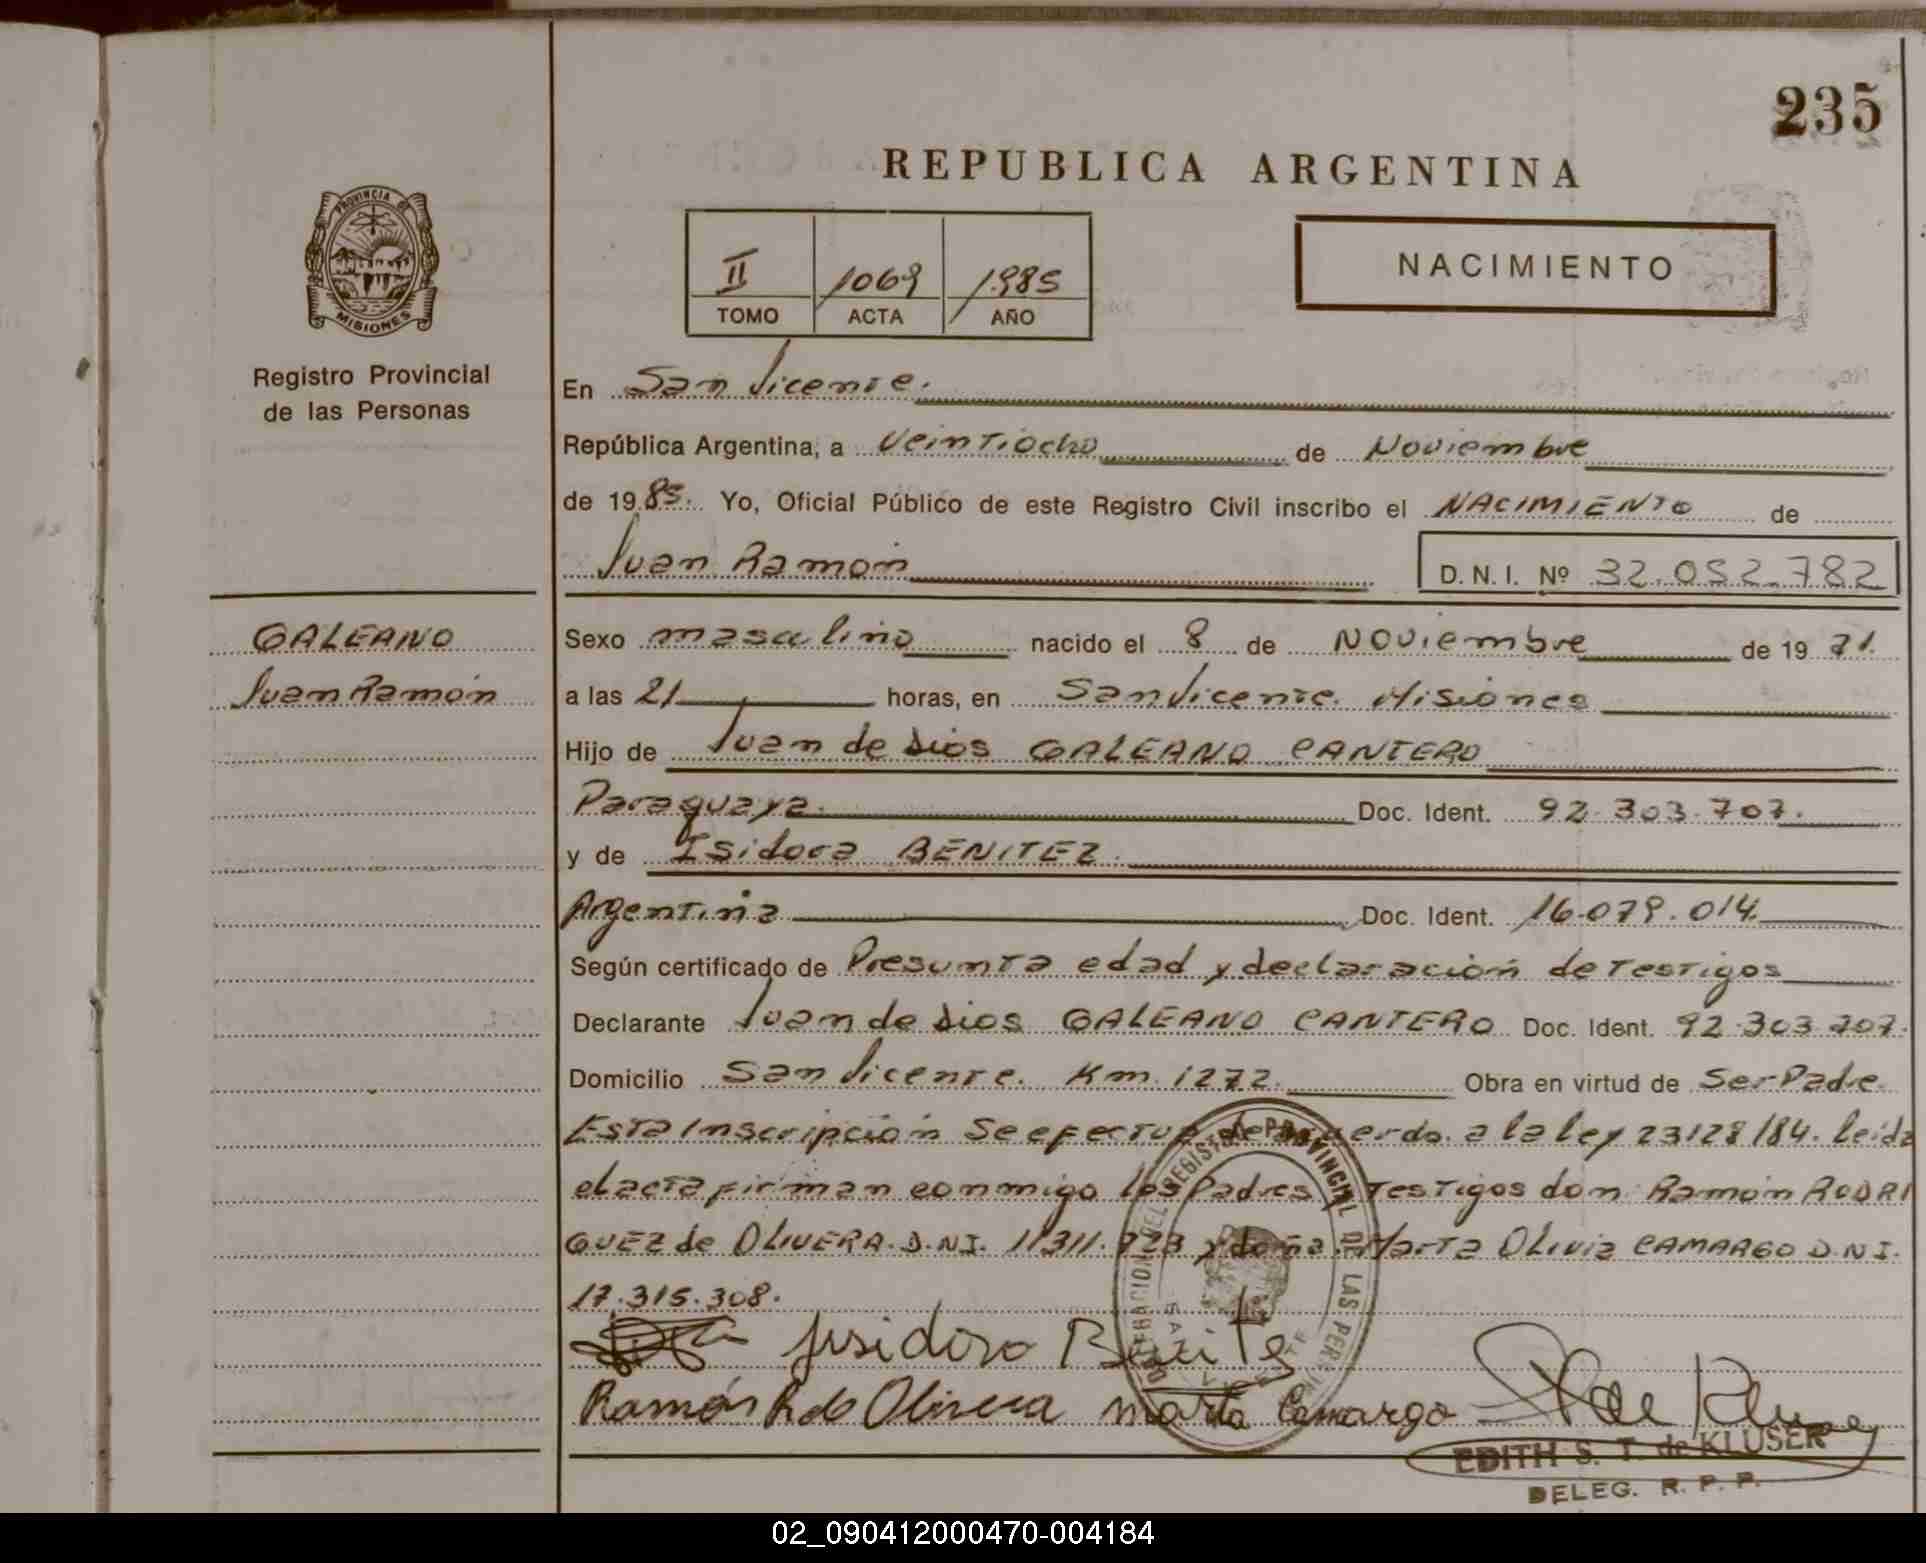 235
REPUBLICA ARGENTINA
PROVINCIA DE
MISIONES
Registro Provincial
de las Personas
II 1069 1985
TOMO ACTA AÑO
NACIMIENTO
En San Vicente.
República Argentina, a Veintiocho de Noviembre
de 1985. Yo, Oficial Público de este Registro Civil inscribo el NACIMIENTO de
Juan Ramón D. N. I. Nº 32.052.782
GALEANO
Juan Ramón
Sexo masculino nacido el 8 de Noviembre de 1971.
a las 21 horas, en San Vicente. Misiones
Hijo de Juan de Dios GALEANO CANTERO
Paraguaya. Doc. Ident. 92.303.707.
y de Isidora BENITEZ.
Argentina Doc. Ident. 16.079.014.
Según certificado de Presunta edad y declaración de testigos
Declarante Juan de Dios GALEANO CANTERO Doc. Ident. 92.303.707.
Domicilio San Vicente. Km. 1272. Obra en virtud de Ser Padre.
Esta Inscripción se efectua de acuerdo a la ley 23128/84. leida
el acta firman conmigo los Padres y Testigos don Ramón RODRI
GUEZ de OLIVERA. D.N.I. 11311.723 y doña Marta Olivia CAMARGO D.N.I.
17.315.308.
Jsidora Benites
Ramón R de Olivera Marta Camargo
EDITH S. T. de KLUSER
DELEG. R. P. P.
02_090412000470-004184